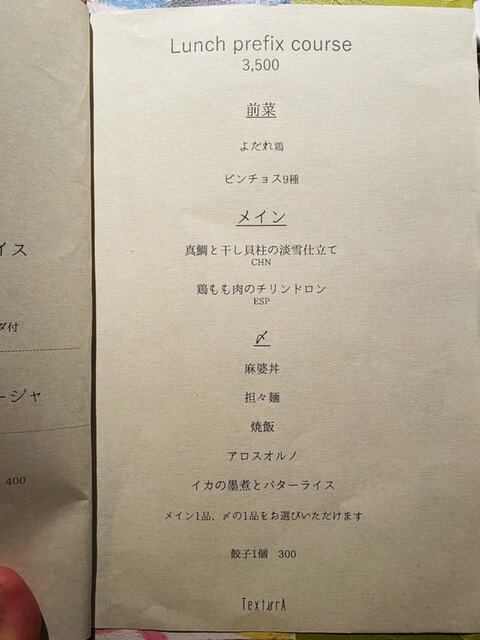 イス
ダ付
ージャ
400
Lunch prefix course
3,500
前菜
よだれ鶏
ピンチョス9種
メイン
真鯛と干し貝柱の淡雪仕立て
CHN
鶏もも肉のチリンドロン
ESP
〆
麻婆丼
担々麺
焼飯
アロスオルノ
イカの墨煮とバターライス
メイン1品、〆の1品をお選びいただけます
餃子1個 300
TexturA